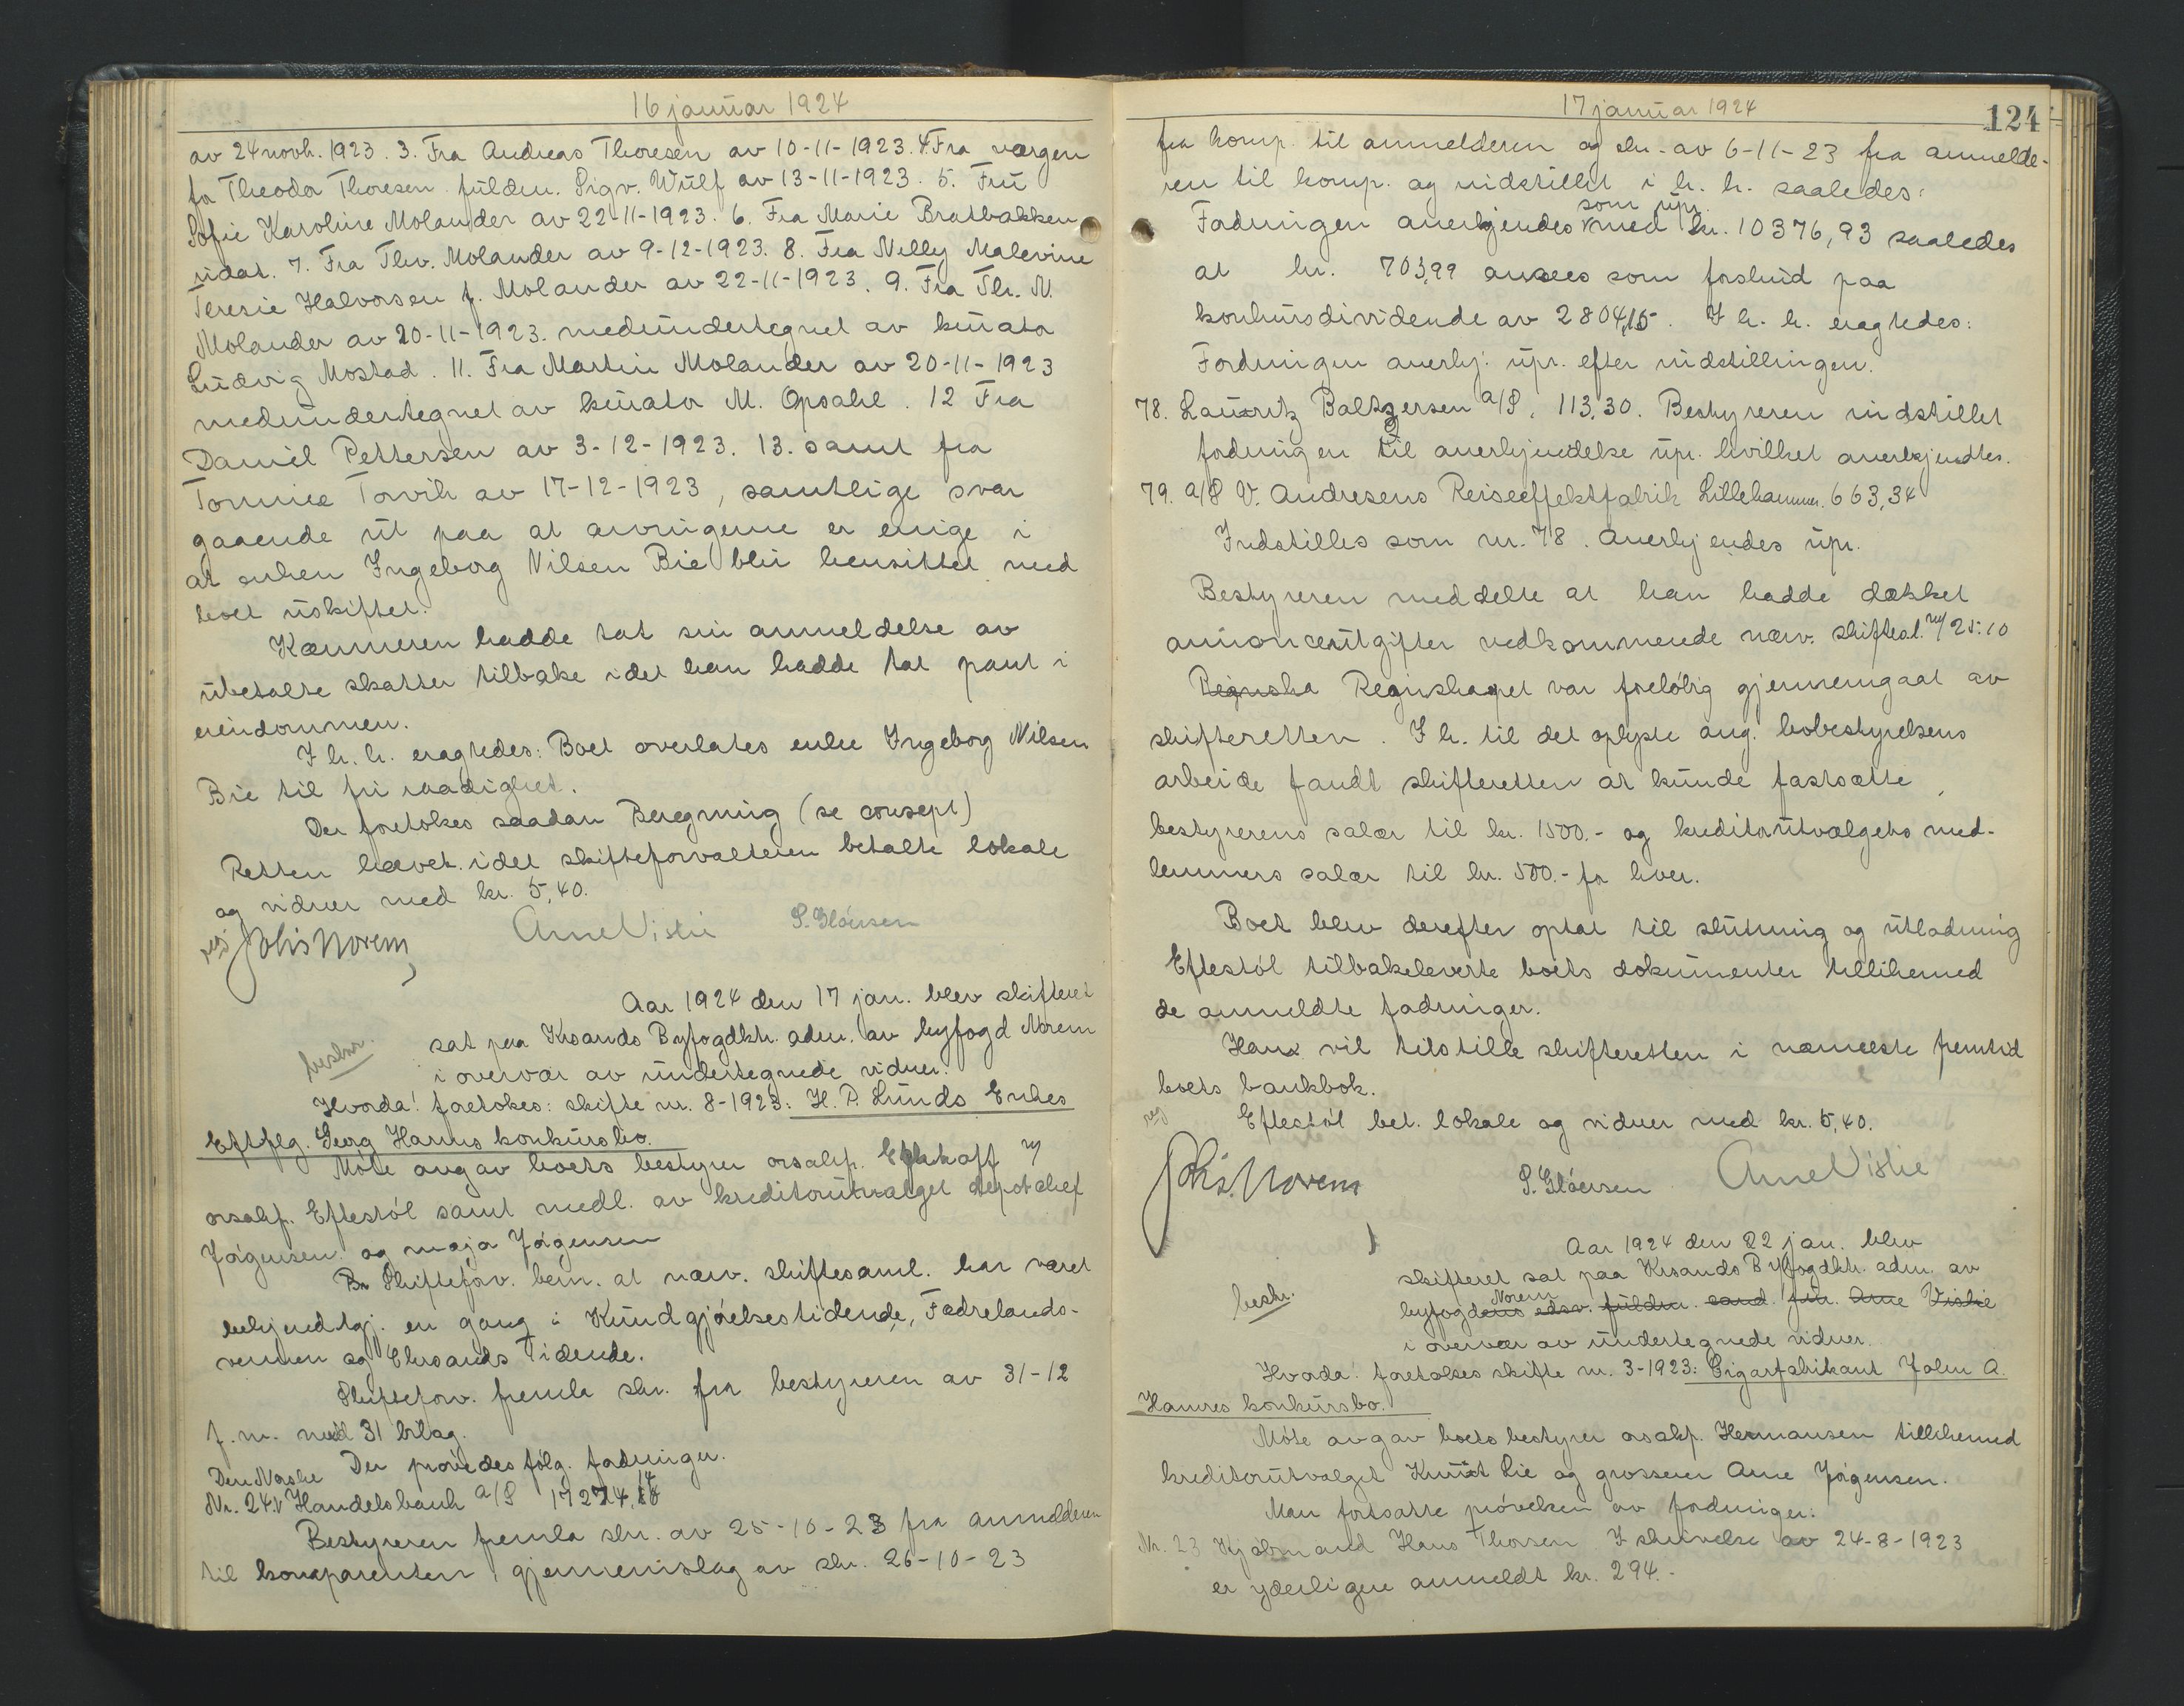 16 januar 1924
av 24 novb. 1923. 3. Fra Andreas Thoresen av 10-11-1923. 4 Fra værgen
for Theodor Thoresen fuldm. Sigv. Wulf av 13-11-1923. 5. Fru
Sofie Karoline Molander av 22-11-1923. 6. Fra Marie Bratbakken
udat. 7. Fra Thv. Molander av 9-12-1923. 8. Fra Nelly Malevine
Teresie Halvorsen f. Molander av 22-11-1923. 9. Fra Th. N.
Molander av 20-11-1923. medundertegnet av kurator
Ludvig Mostad. 11. Fra Martin Molander av 20-11-1923
medundertegnet av kurator M. Opsahl. 12 Fra
Daniel Pettersen av 3-12-1923. 13. samt fra
Tomine Torvik av 17-12-1923, samtlige svar
gaaende ut paa at arvingerne er enige i
at enken Ingeborg Nilsen Bie blir hensittet med
boet uskiftet.
Kæmneren hadde tat sin anmeldelse av
ubetalte skatter tilbake idet han hadde tat pant i
eiendommen.
I h. h. eragtedes: Boet overlates enke Ingeborg Nilsen
Bie til fri raadighet.
Der foretokes saadan Beregning (se consept)
Retten hævet idet skifteforvalteren betalte lokale
og vidner med kr. 5,40.
reg Johs Norem Arne Vislie S. Gloersen
Aar 1924 den 17 jan. blev skifteret
sat paa Krsands Byfogdktr. adm. av byfogd Norem
beskr. i overvær av undertegnede vidner.
Hvorda! foretokes: skifte nr. 8-1923: H. P. Lunds Enkes
Eftflg. Georg Harms konkursbo.
Møte avgav boets bestyrer orsakf. Eckhoff v/
orsakf. Eftestøl samt medl. av kreditorutvalget depotchef
Jørgensen og major Jørgensen
Br Skifteforv. bem. at nærv. skiftesaml. har været
bekjendtgj. en gang i Kundgjørelsestidende, Fædrelands-
vennen og Chrsands Tidende.
Skifteforv. fremla skr. fra bestyreren av 31-12
f. m. med 31 bilag.
Der prøvedes følg. fordringer.
Den Norske
Nr. 24. Handelsbank a/S 17274,14
Bestyreren fremla skr. av 25-10-23 fra anmelderen
til komparenten i gjennemslag av skr. 26-10-23
17 januar 1924
124
fra komp. til anmelderen og skr. av 6-11-23 fra anmelde-
ren til komp. og indstillet i h. h. saaledes:
som upr.
Fordringen anerkjendes med kr. 10376,93 saaledes
at kr. 703,99 ansees som forskud paa
konkursdividende av 2804,15. I h. h. eragtedes:
Fordringen anerkj. upr. efter indstillingen.
78. Lauritz Baltzersen a/S. 113,30. Bestyreren indstillet
fordringen til anerkjendelse upr. hvilket anerkjendtes.
79. a/S V. Andresens Reiseeffektfabrik Lillehammer. 663,34
Indstilles som nr. 78. Anerkjendes upr.
Bestyreren meddelte at han hadde dækket
annonceutgifter vedkommende nærv. skiftesaml. m/ 25.10
Regnska Regnskapet var foreløbig gjennemgaat av
skifteretten. I h. til det oplyste ang. bobestyrelsens
arbeide fandt skifteretten at kunde fastsætte
bestyrerens salær til kr. 1500.- og kreditorutvalgets med-
lemmers salær til kr. 500.- for hver.
Boet blev derefter optat til slutning og utlodning
Eftestøl tilbakeleverte boets dokumenter tillikemed
de anmeldte fordringer.
Han vil tilstille skifteretten i nærmeste fremtid
boets bankbok.
reg Eftestøl bet. lokale og vidner med kr. 5,40.
Johs. Norem S. Gloersen Arne Vislie
Aar 1924 den 22 jan. blev
skifteret sat paa Krsands Byfogdktr. adm. av
Norem
beskr. byfogdens edsv. fuldm. cand. jur. Arne Vislie
i overvær av undertegnede vidner.
Hvorda! foretokes skifte nr. 3-1923: Cigarfabrikant John A.
Hamres konkursbo.
Møte avgav boets bestyrer orsakf. Hermansen tillikemed
kreditorutvalget Knut Lie og grosserer Arne Jørgensen.
Man fortsatte prøvelsen av fordringer:
Nr. 23 Kjøbmand Hans Thorsen I skrivelse av 24-8-1923
er yderligere anmeldt kr. 294.-